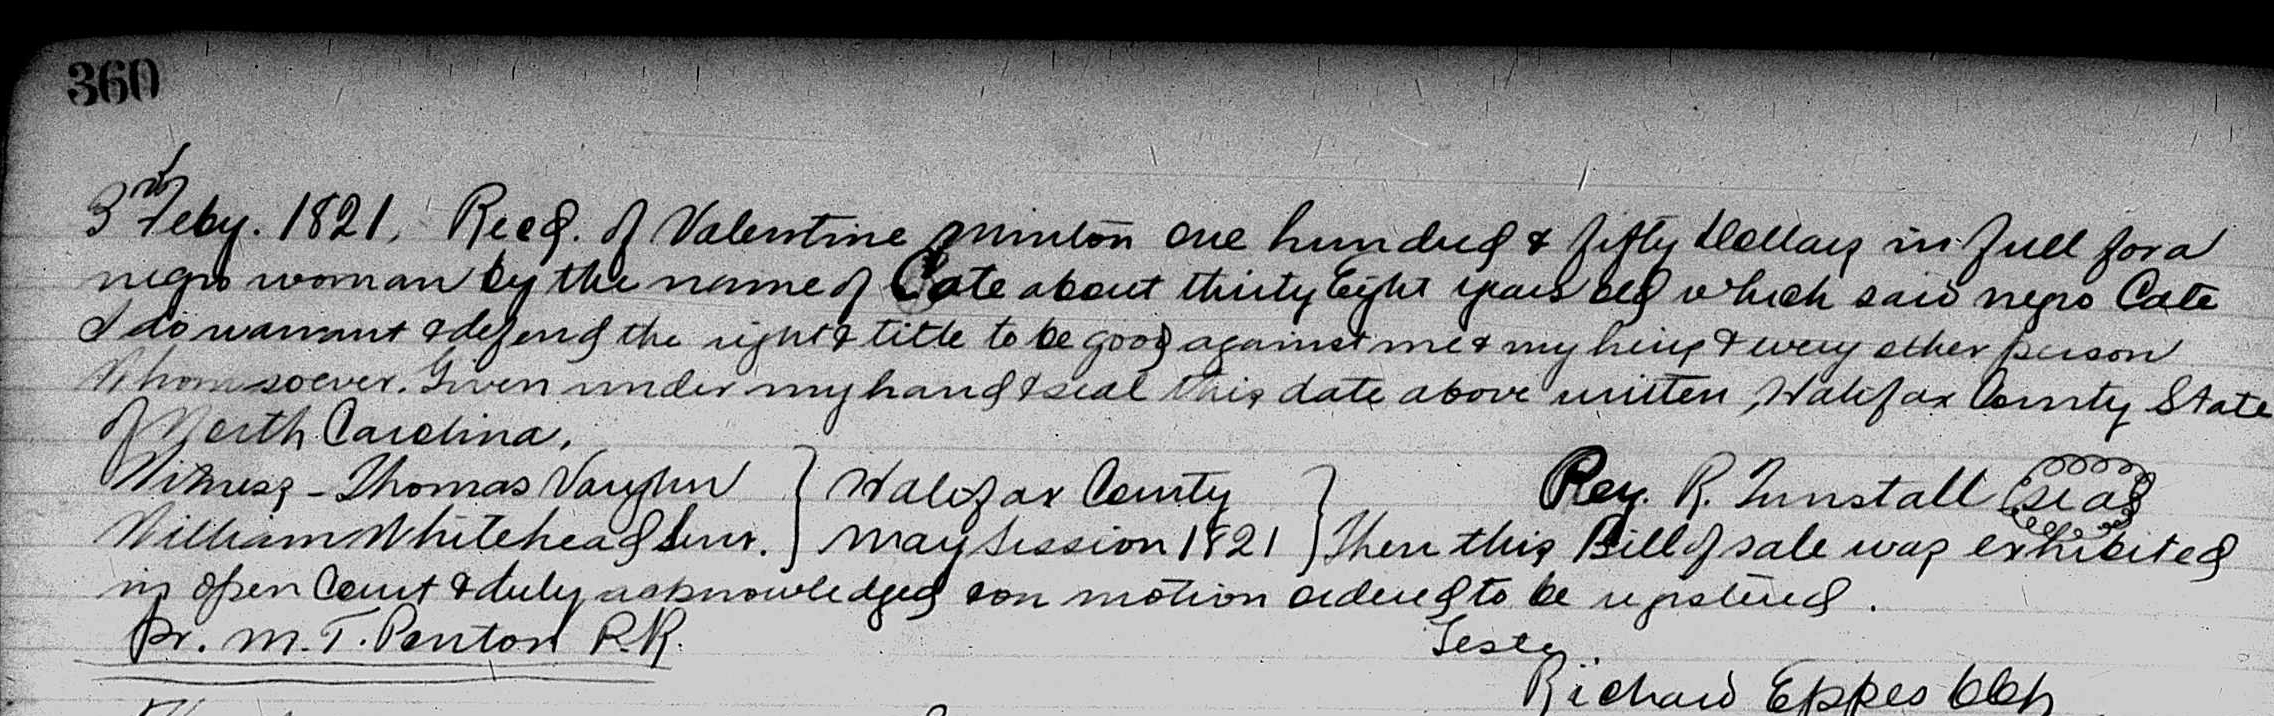 360
3rd Feby. 1821, Recd. of Valentine Minton one hundred & fifty Dollars in full for a
negro woman by the name of Cate about thirty Eight years old which said negro Cate
I do warrant & defend the right & title to be good against me & my heirs & every other person
Whomsoever. Given under my hand & seal this date above written, Halifax County State
of North Carolina,
Witness - Thomas Vaughn } Halifax County } Rey. R. Tunstall (seal)
William Whitehead Senr. } May Session 1821 } Then this Bill of sale was exhibited
in open Court & duly acknowledged & on motion ordered to be registered.
Pr. M. T. Ponton P.R. Teste
Richard Eppes Clk